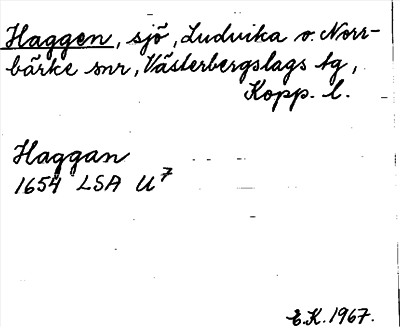 Haggen, sjö, Ludvika o. Norr-
bärke snr, Västerbergslags tg,
Kopp. l.
Haggan
1654 LSA U⁷
E.K. 1967.